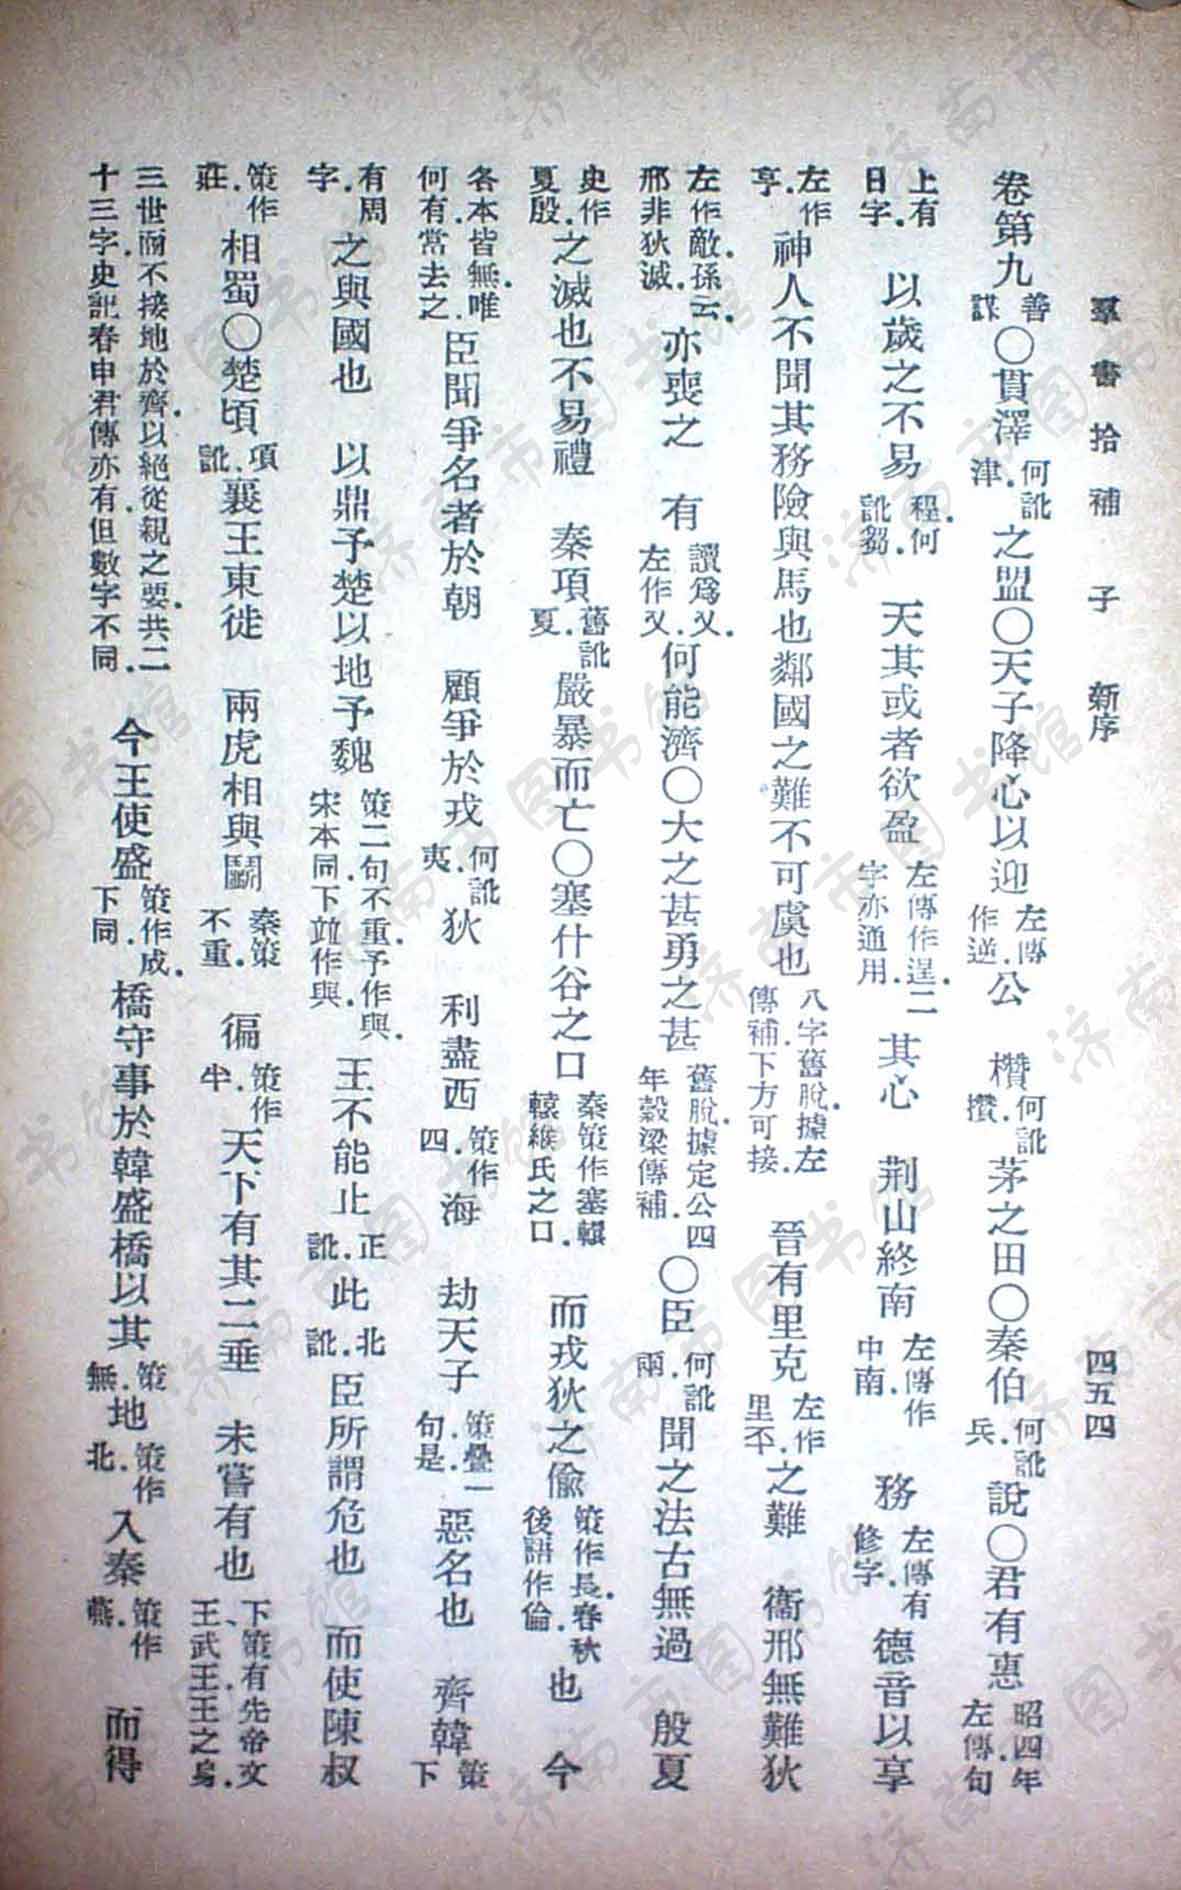 羣書拾補 子 新序 四五四
卷第九善謀〇貫澤何訛津.之盟〇天子降心以迎左傳作逆.公 櫕何訛攢.茅之田〇秦伯何訛兵.說〇君有惠昭四年左傳.句
上有日字. 以歲之不易程.何訛芻. 天其或者欲盈左傳作逞.二字亦通用.其心 荆山終南左傳作中南. 務左傳有修字.德音以享
左作亨.神人不聞其務險與馬也鄰國之難不可虞也八字舊脫.據左傳補.下方可接. 晉有里克左作里㔻.之難 衞邢無難狄
左作敵.孫云.邢非狄滅.亦喪之 有讀爲又.左作又.何能濟〇大之甚勇之甚舊脫.據定公四年穀梁傳補.〇臣何訛兩.聞之法古無過 殷夏
史作夏殷.之滅也不易禮 秦項舊訛夏.嚴暴而亡〇塞什谷之口秦策作塞轘轅緱氏之口. 而戎狄之倫策作長.春秋後語作倫.也 今
各本皆無.唯何有.當去之.臣聞爭名者於朝 顧爭於戎何訛夷.狄 利盡西策作四.海 劫天子策疊一句.是. 惡名也 齊韓策下
有周字.之與國也 以鼎予楚以地予魏策二句不重.予作與.宋本同.下竝作與. 王不能止正訛.此北訛. 臣所謂危也 而使陳叔
策作莊.相蜀〇楚頃項訛.襄王東徙 兩虎相與鬭秦策不重. 徧策作半.天下有其二垂 未嘗有也下策有先帝文王、武王、王之身.
三世而不接地於齊.以絕從親之要.共二十三字.史記春申君傳亦有.但數字不同. 今王使盛策作成.下同.橋守事於韓盛橋以其策無.地策作北.入秦策作燕. 而得